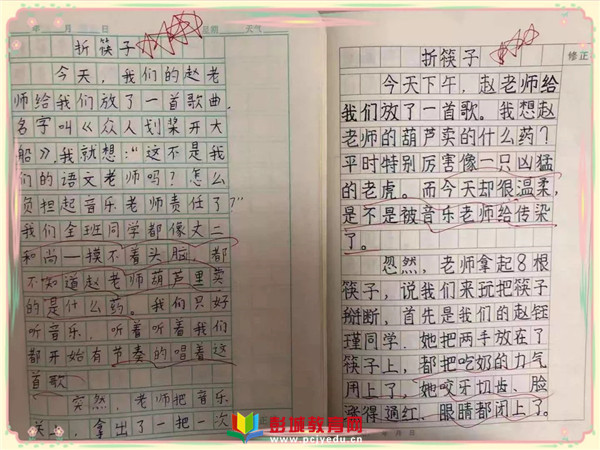 年 月 日 星期 天气
折筷子
今天，我们的赵老
师给我们放了一首歌曲，
名字叫《众人划桨开大
船》，我就想："这不是我
们的语文老师吗？怎么
负担起音乐老师责任了？"
我们全班同学都像丈二
和尚—摸不着头脑，都
不知道赵老师葫芦里卖
的是什么药。我们只好
听音乐，听着听着我们
都开始有节奏的唱着这
首歌
突然，老师把音乐
关上，拿出了一把一次
折筷子
修正
今天下午，赵老师给
我们放了一首歌。我想赵
老师的葫芦卖的什么药？
平时特别厉害像一只凶猛
的老虎。而今天却很温柔，
是不是被音乐老师给传染
了。
忽然，老师拿起8根
筷子，说我们来玩把筷子
掰断，首先是我们的赵钰
瑾同学，她把两手放在了
筷子上，都把吃奶的力气
用上了，她咬牙切齿、脸
涨得通红、眼睛都闭上了。
彭城教育网
www.pcjyedu.cn